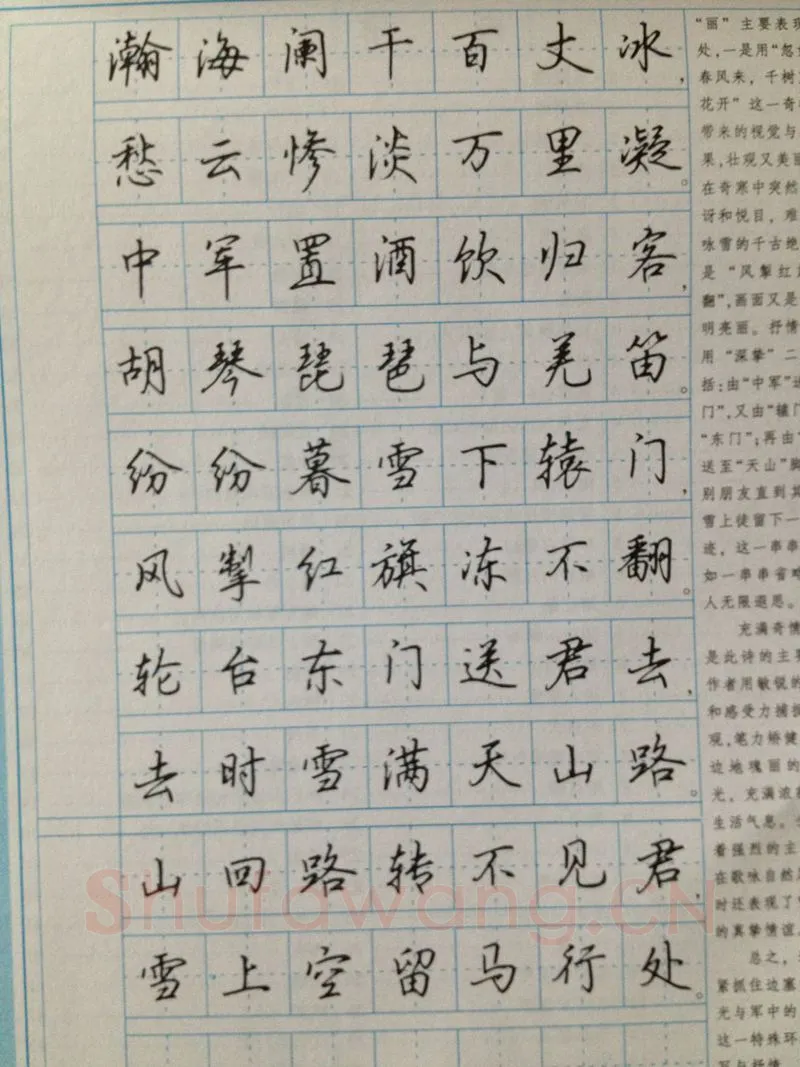 瀚海阑干百丈冰，
愁云惨淡万里凝。
中军置酒饮归客，
胡琴琵琶与羌笛。
纷纷暮雪下辕门，
风掣红旗冻不翻。
轮台东门送君去，
去时雪满天山路。
山回路转不见君，
雪上空留马行处。
"丽"主要表现
处,一是用"忽
春风来，千树
花开"这一奇
带来的视觉与
果,壮观又美丽
在奇寒中突然
讶和悦目，难
咏雪的千古绝
是"风掣红
翻",画面又是
明亮丽。抒情
用"深挚"二
括:由"中军"
门",又由"辕门
"东门";再由"
送至"天山"脚
别朋友直到其
雪上徒留下一
迹，这一串串
如一串串省略
人无限遐思。
充满奇情
是此诗的主要
作者用敏锐的
和感受力捕捉
观,笔力矫健
边地瑰丽的
光，充满浓
生活气息。
着强烈的主
在歌咏自然
时还表现了
的真挚情谊。
总之，
紧抓住边塞
光与军中的
这一特殊环
写与抒情
Shufawang.CN